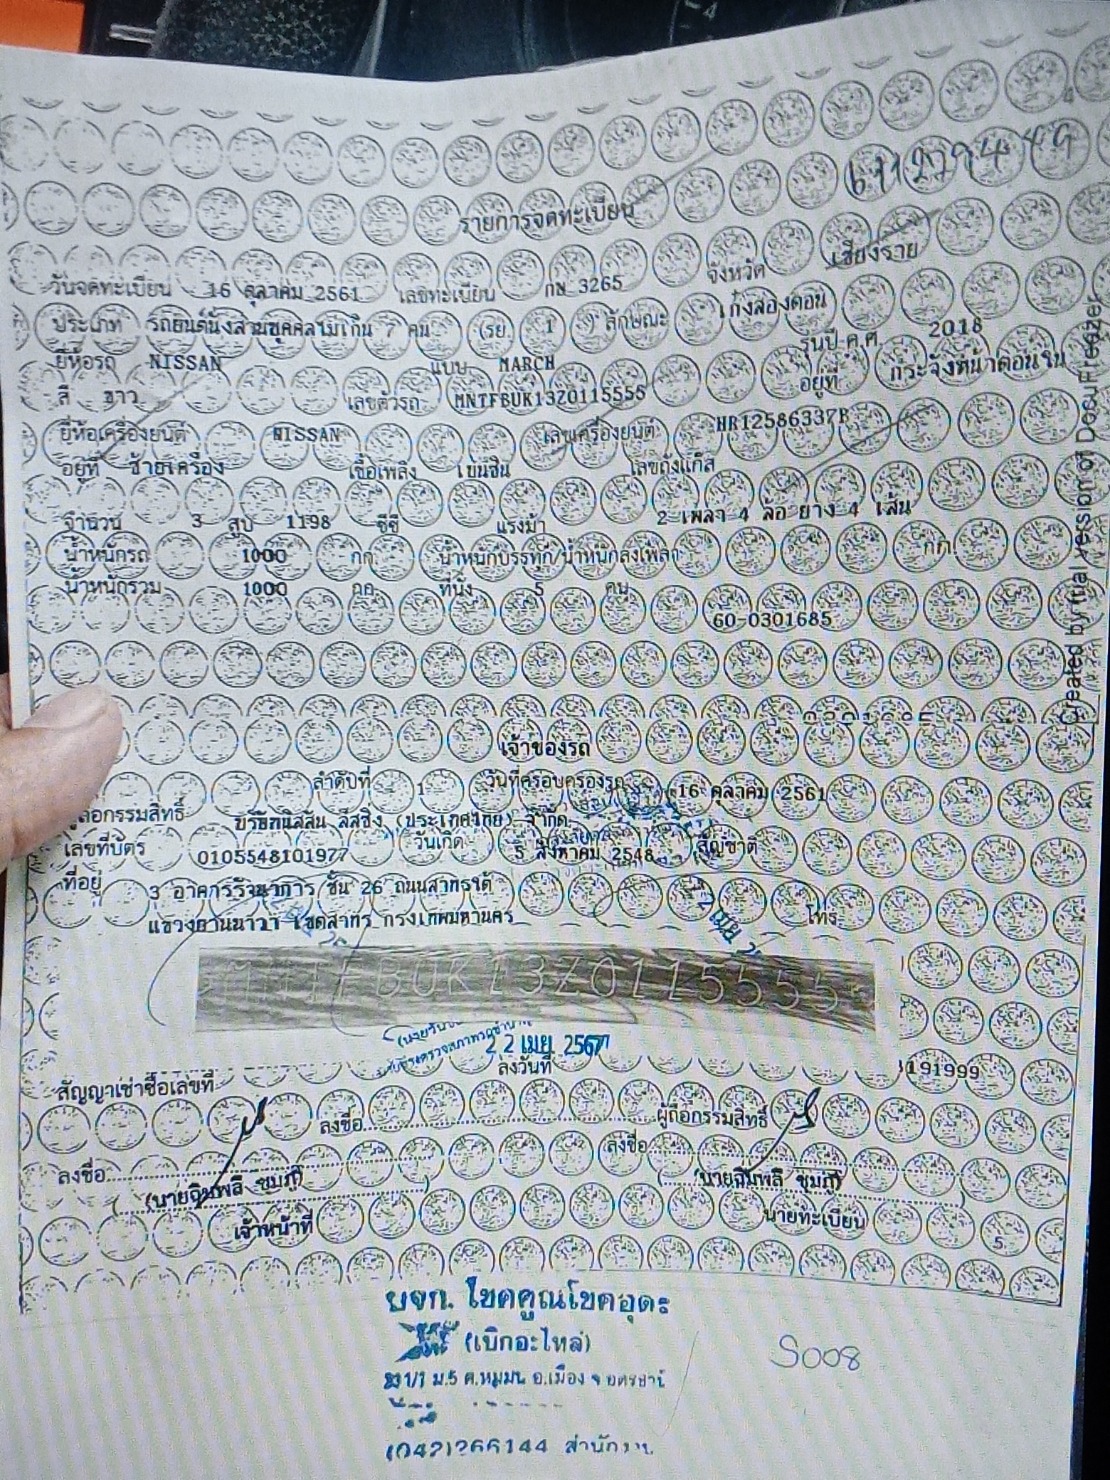 61122949
รายการจดทะเบียน
วันจดทะเบียน 16 ตุลาคม 2561 เลขทะเบียน กน 3265 จังหวัด เชียงราย
ประเภท รถยนต์นั่งส่วนบุคคลไม่เกิน 7 คน (รย. 1 ) ลักษณะ เก๋งสองตอน
ยี่ห้อรถ NISSAN แบบ MARCH รุ่นปี ค.ศ. 2018
สี ขาว เลขตัวรถ MNTFBUK13Z0115555 อยู่ที่ กระจังหน้าตอนใน
ยี่ห้อเครื่องยนต์ NISSAN เลขเครื่องยนต์ HR12586337B
อยู่ที่ ซ้ายเครื่อง เชื้อเพลิง เบนซิน เลขถังแก๊ส
จำนวน 3 สูบ 1198 ซีซี แรงม้า 2 เพลา 4 ล้อ ยาง 4 เส้น
น้ำหนักรถ 1000 กก. น้ำหนักบรรทุก/น้ำหนักลงเพลา กก.
น้ำหนักรวม 1000 กก. ที่นั่ง 5 คน
60-0301685
เจ้าของรถ
ลำดับที่ 1 วันที่ครอบครองรถ 16 ตุลาคม 2561
ผู้ถือกรรมสิทธิ์ บริษัทนิสสัน ลีสซิ่ง (ประเทศไทย) จำกัด
เลขที่บัตร 0105548101977 วันเกิด 5 สิงหาคม 2548 สัญชาติ
ที่อยู่ 3 อาคารรัจนาการ ชั้น 26 ถนนสาทรใต้
แขวงยานนาวา เขตสาทร กรุงเทพมหานคร โทร.
MNTFBUK13Z0115555
22 เม.ย. 2567
สัญญาเช่าซื้อเลขที่ ลงวันที่ 191999
ลงชื่อ ผู้ถือกรรมสิทธิ์
ลงชื่อ ลงชื่อ
(นายฉิมพลี ชุมภู) (นายฉิมพลี ชุมภู)
เจ้าหน้าที่ นายทะเบียน
5
Created by trial version of DocuFreezer
บจก. โชคคูณโชคอุดร
(เบิกอะไหล่)
ม.5 ต.หมูม่น อ.เมือง จ.อุดรธานี
(042)266144 สำนักงาน
S008